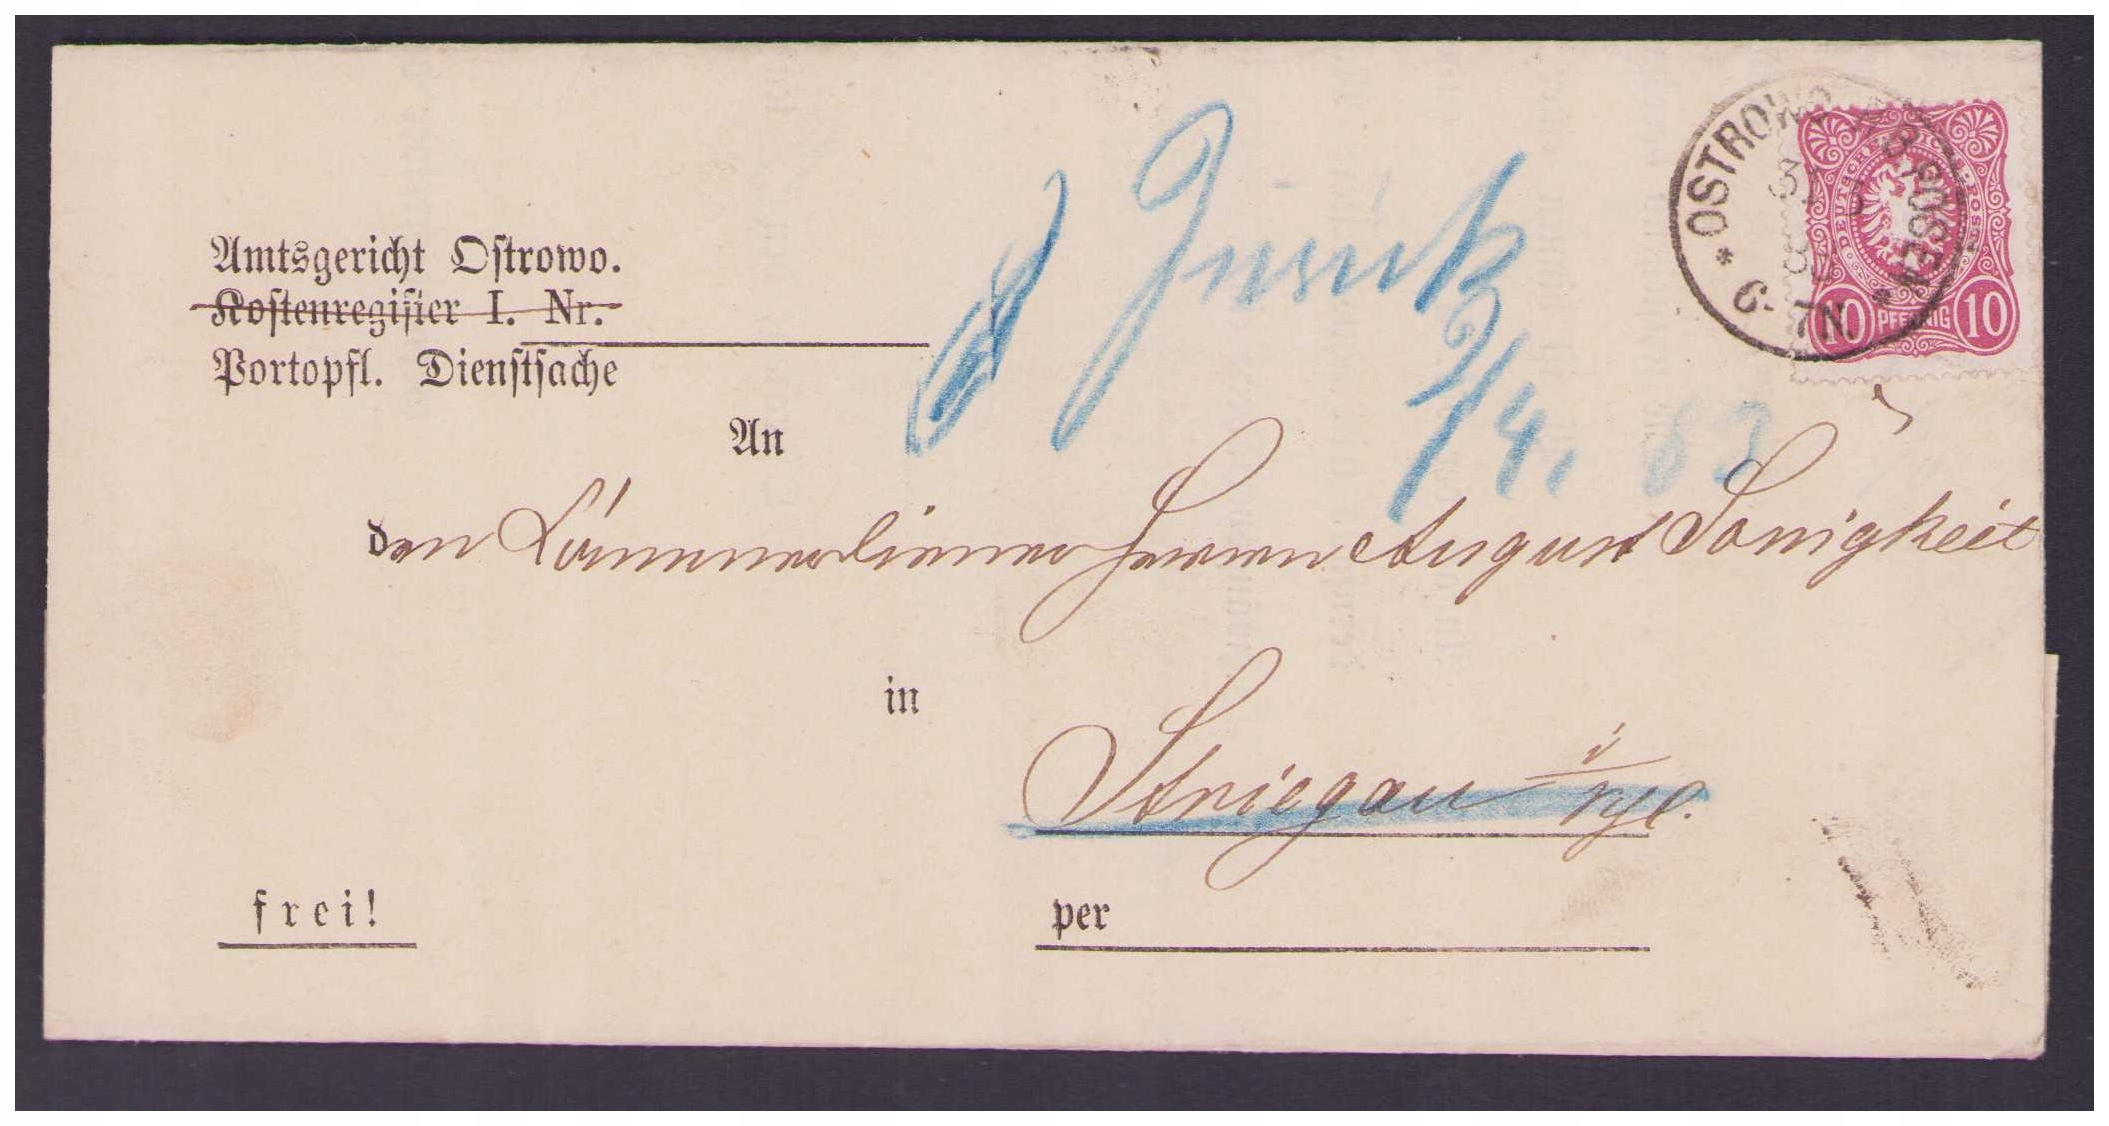 Amtsgericht Ostrowo.
Kostenregister I. Nr.
Portopfl. Dienstsache
Zurück
2/4. 83
OSTROWO
POSEN
31 3
83
6-7N.
DEUTSCHE
POST
10 PFENNIG 10
An
den Kammerdiener Herrn August Sonigkeit
in
Striegau i/Schl.
frei!
per